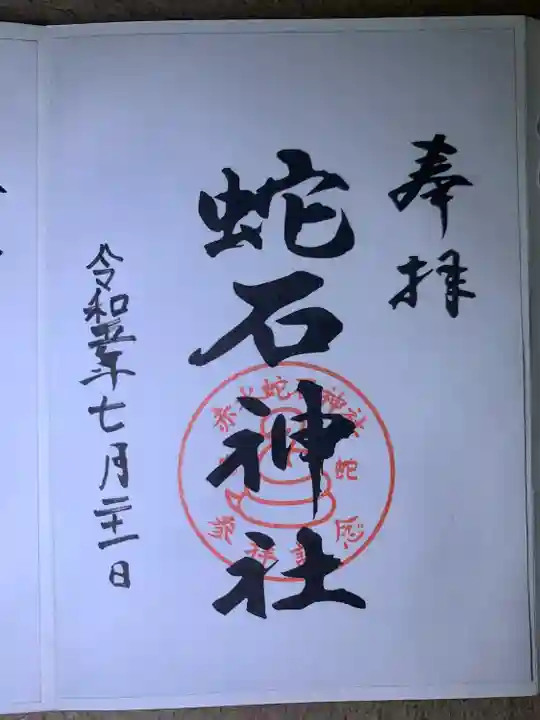 奉拝
蛇石神社
蛇石神社
蛇
参拝記念
令和五年七月二十一日